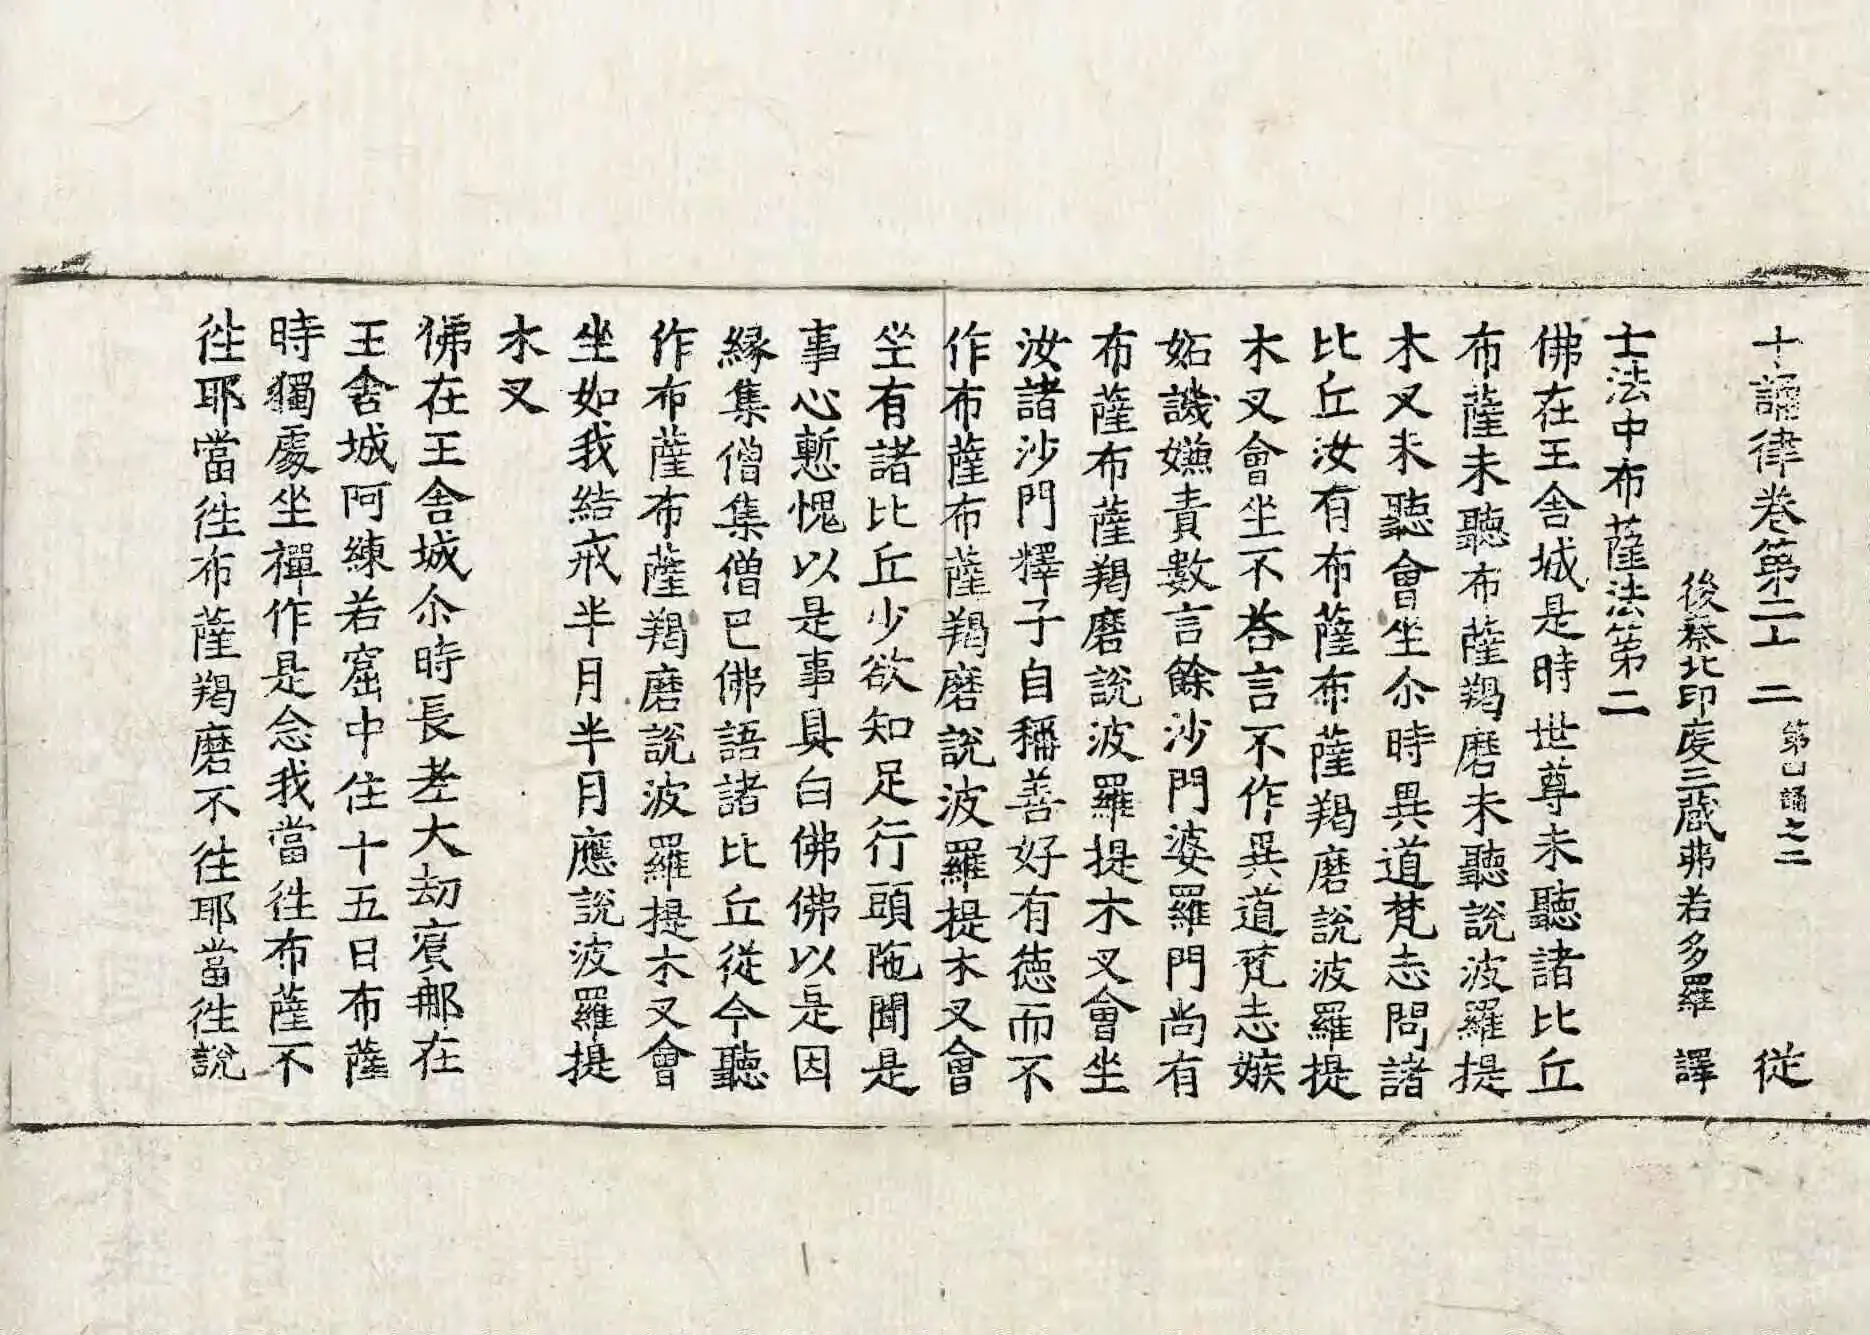 十誦律卷第二十二 第四誦之二 従
後秦北印度三藏弗若多羅 譯
七法中布薩法第二
佛在王舍城是時世尊未聽諸比丘
布薩未聽布薩羯磨未聽說波羅提
木叉未聽會坐尒時異道梵志問諸
比丘汝有布薩布薩羯磨說波羅提
木叉會坐不荅言不作異道梵志嫉
妬譏嫌責數言餘沙門婆羅門尚有
布薩布薩羯磨說波羅提木叉會坐
汝諸沙門釋子自稱善好有德而不
作布薩布薩羯磨說波羅提木叉會
坐有諸比丘少欲知足行頭陁聞是
事心慙愧以是事具白佛佛以是因
緣集僧集僧已佛語諸比丘從今聽
作布薩布薩羯磨說波羅提木叉會
坐如我結戒半月半月應說波羅提
木叉
佛在王舍城尒時長老大劫賓那在
王舍城阿練若窟中住十五日布薩
時獨處坐禪作是念我當徃布薩不
徃耶當徃布薩羯磨不徃耶當徃說